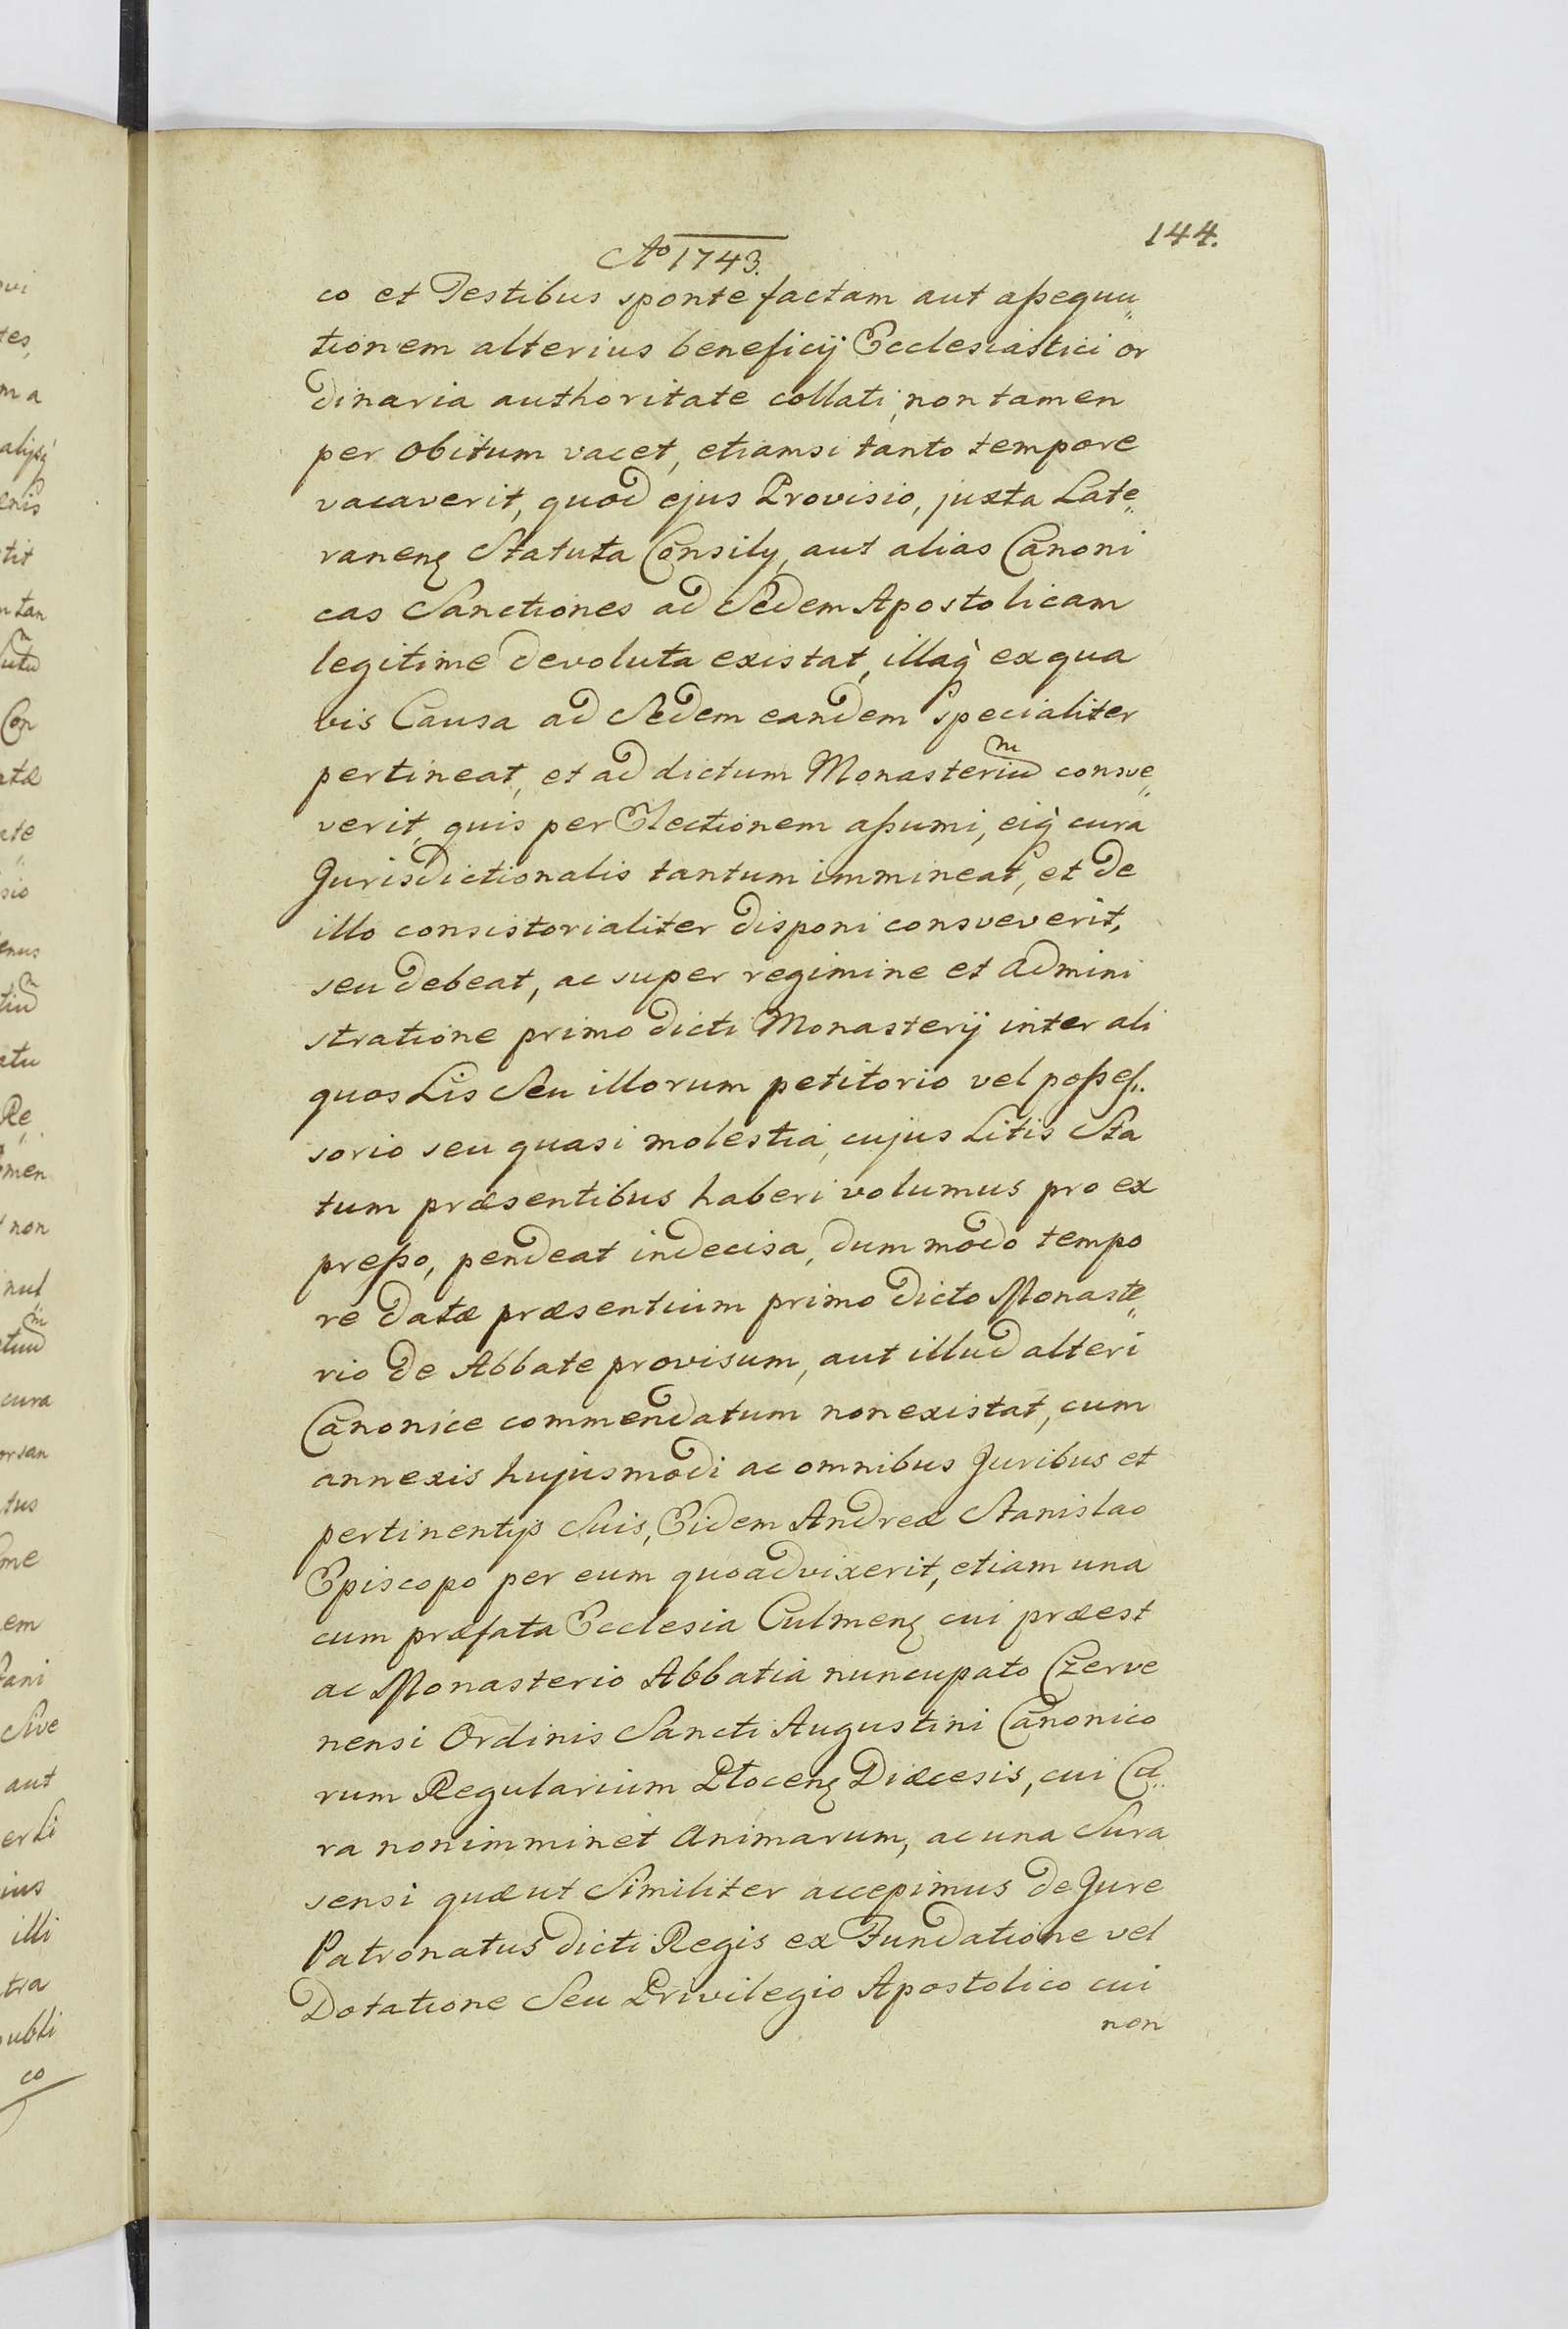 144.
Aᵒ 1743.
co et Testibus sponte factam aut aßequu„
tionem alterius beneficij Ecclesiastici or
dinaria authoritate collati, non tamen
per obitum vacet, etiamsi tanto tempore
vacaverit, quod ejus Provisio, juxta Late„
ranenꝫ Statuta Consily, aut alias Canoni
cas Sanctiones ad Sedem Apostolicam
legitime devoluta existat, illaq̀ ex qua
vis Causa ad Sedem eandem specialiter
pertineat, et ad dictum Monasteriũ consve„
verit, quis per Electionem aßumi, eiq̀ cura
Jurisdictionalis tantum immineat, et de
illo consistorialiter disponi consveverit,
seu debeat, ac super regimine et admini
stratione primo dicti Monasterij inter ali
quos Lis Seu illorum petitorio vel poßes„
sorio seu quasi molestia, cujus Litis Sta
tum præsentibus haberi volumus pro ex
preßo, pendeat indecisa, dum modo tempo
re datæ præsentium primo dicto Monaste„
rio de Abbate provisum, aut illud alteri
Canonice commendatum non existat, cum
annexis hujusmodi ac omnibus Juribus et
pertinentijs Suis, Eidem Andreæ Stanislao
Episcopo per eum quoad vixerit, etiam una
cum præfata Ecclesia Culmenꝫ cui præest
ac Monasterio Abbatia nuncupato Czerve
nensi Ordinis Sancti Augustini Canonico
rum Regularium Plocenꝫ Diæcesis, cui Cu„
ra non imminet Animarum, ac una Sura
sensi quæ ut Similiter accepimus de Jure
Patronatus dicti Regis ex Fundatione vel
Dotatione Seu Privilegio Apostolico cui
non